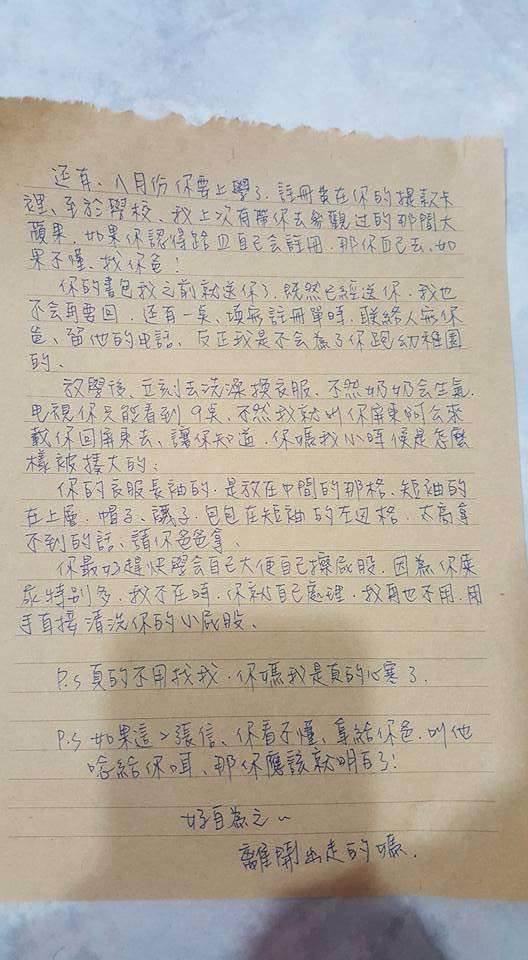 还有、八月份你要上學了、註冊費在你的提款卡
裡、至於學校、我上次有帶你去參觀过的那間大
蘋果、如果你認得路且自己会註冊、那你自己去、如
果不懂、找你爸！
你的書包我之前就送你了、既然已經送你、我也
不会再要回、还有一点、填寫註冊單時、联絡人寫你
爸、留他的电話、反正我是不会為了你跑幼稚園
的、
放學後、立刻去洗澡換衣服、不然奶奶会生氣、
电視你只能看到9点、不然我就叫你屏東阿公來
載你回屏東去、讓你知道、你媽我小時候是怎麼
樣被摟大的；
你的衣服長袖的、是放在中間的那格、短袖的
在上層、帽子、襪子、包包在短袖的左边格、太高拿
不到的話、請你爸爸拿、
你最好趕快學会自己大便自己擦屁股、因為你屎
尿特別多、我不在時、你就自己處理、我再也不用、用
手直接清洗你的小屁股、
P.S 真的不用找我、你媽我是真的心寒了、
P.S 如果這2張信、你看不懂、拿給你爸、叫他
唸給你听、那你應該就明白了！
好自為之～
離開出走的媽、